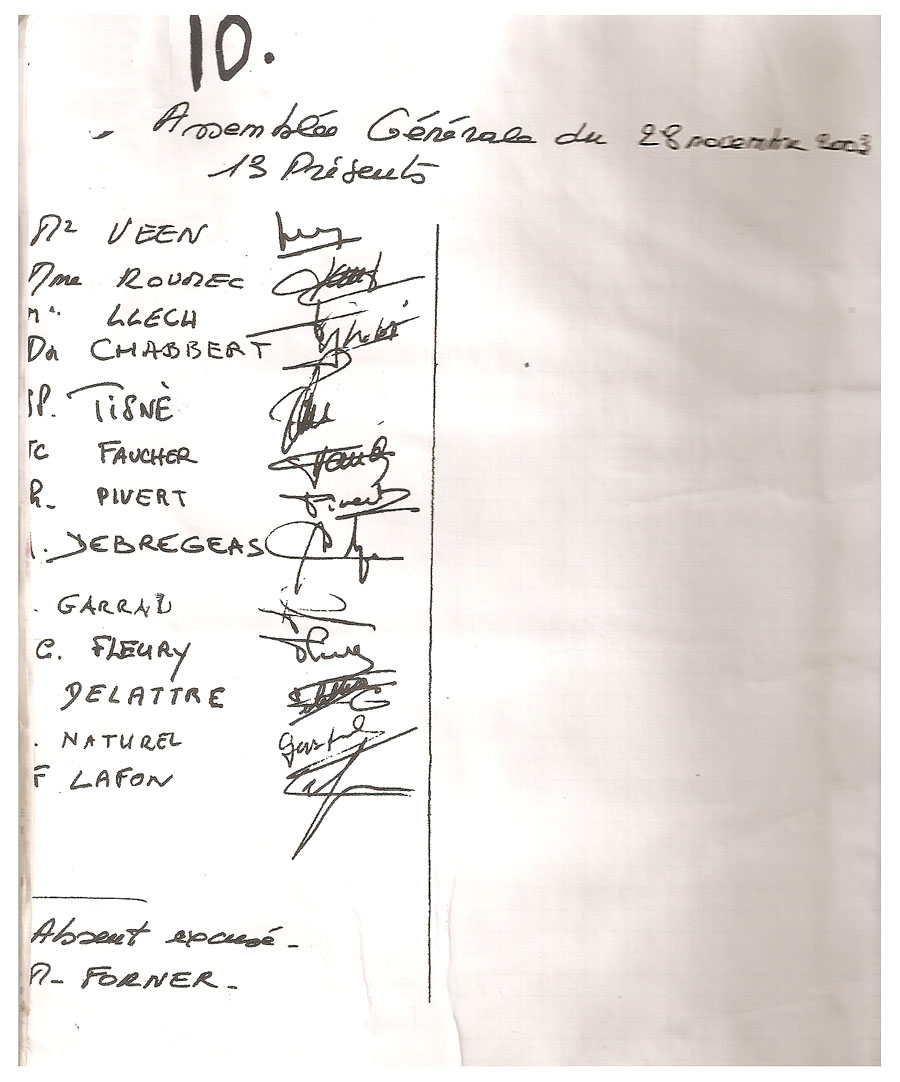 10.
Assemblée Générale du 28 novembre 2003
13 Présents
Mr VEEN
Mme ROUMEC
Mr. LLECH
Dr CHABBERT
JP. TISNÈ
FAUCHER
PIVERT
DEBREGEAS
GARRAU
C. FLEURY
DELATTRE
NATUREL
F LAFON
Absent excusé -
M - FORNER -